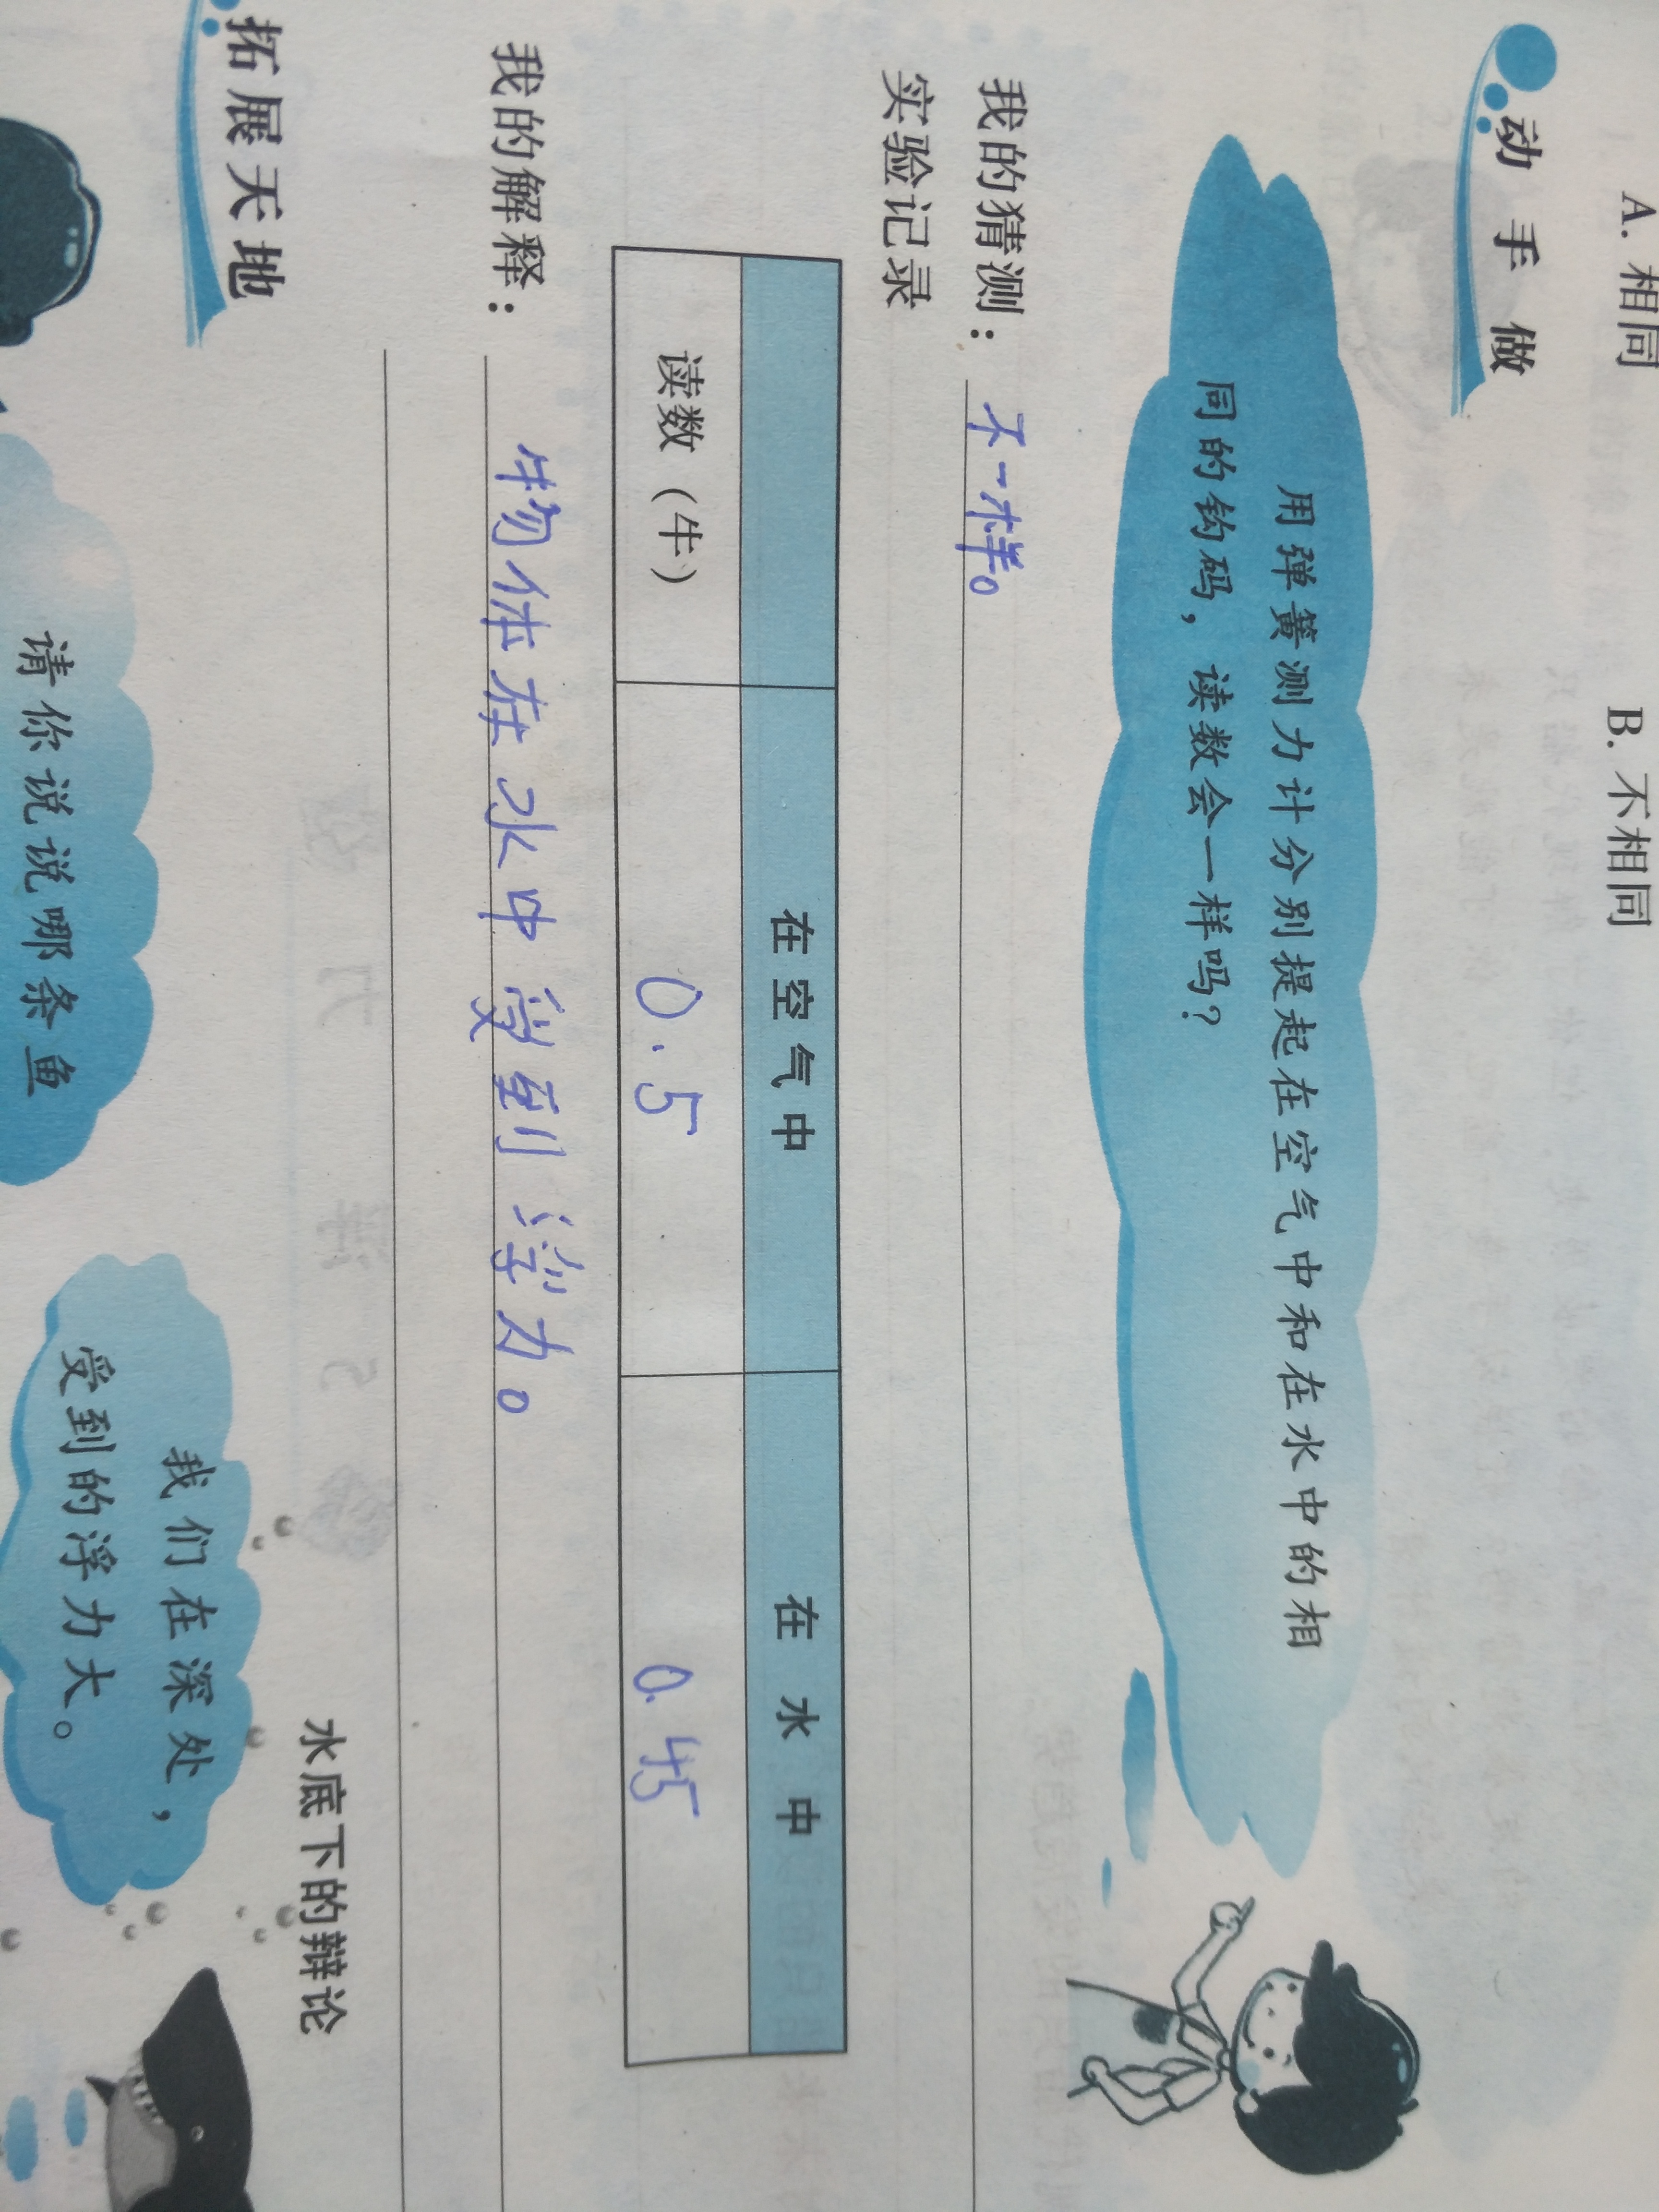 A. 相同 B. 不相同
动手做
用弹簧测力计分别提起在空气中和在水中的相
同的钩码，读数会一样吗？
我的猜测：不一样。
实验记录
在空气中 在水中
读数（牛） 0.5 0.45
我的解释：物体在水中受到浮力。
拓展天地
水底下的辩论
我们在深处，
受到的浮力大。
请你说说哪条鱼